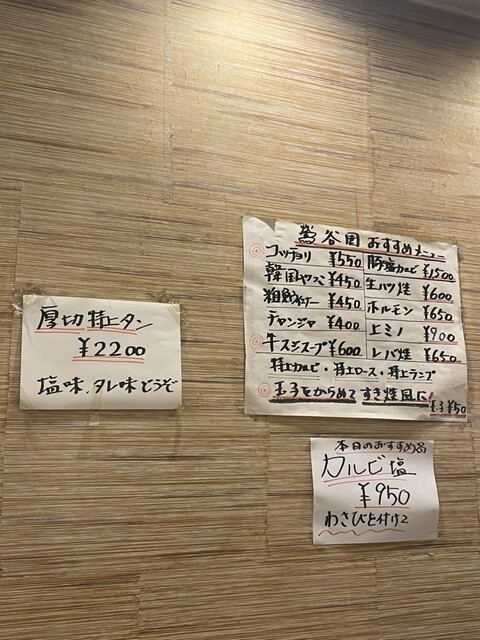 厚切特上タン
¥2200
塩味、タレ味どうぞ
鶯谷園おすすめメニュー
コッチョリ ¥550
韓国やっこ ¥450
粗挽きウインナー ¥450
チャンジャ ¥400
牛スジスープ ¥600
豚塩カルビ ¥1500
生ハツ焼 ¥600
ホルモン ¥650
上ミノ ¥900
レバ焼 ¥650
特上カルビ・特上ロース・特上ランプ
玉子をからめてすき焼風に!
玉子¥50
本日のおすすめ品
カルビ塩
¥950
わさびを付けて